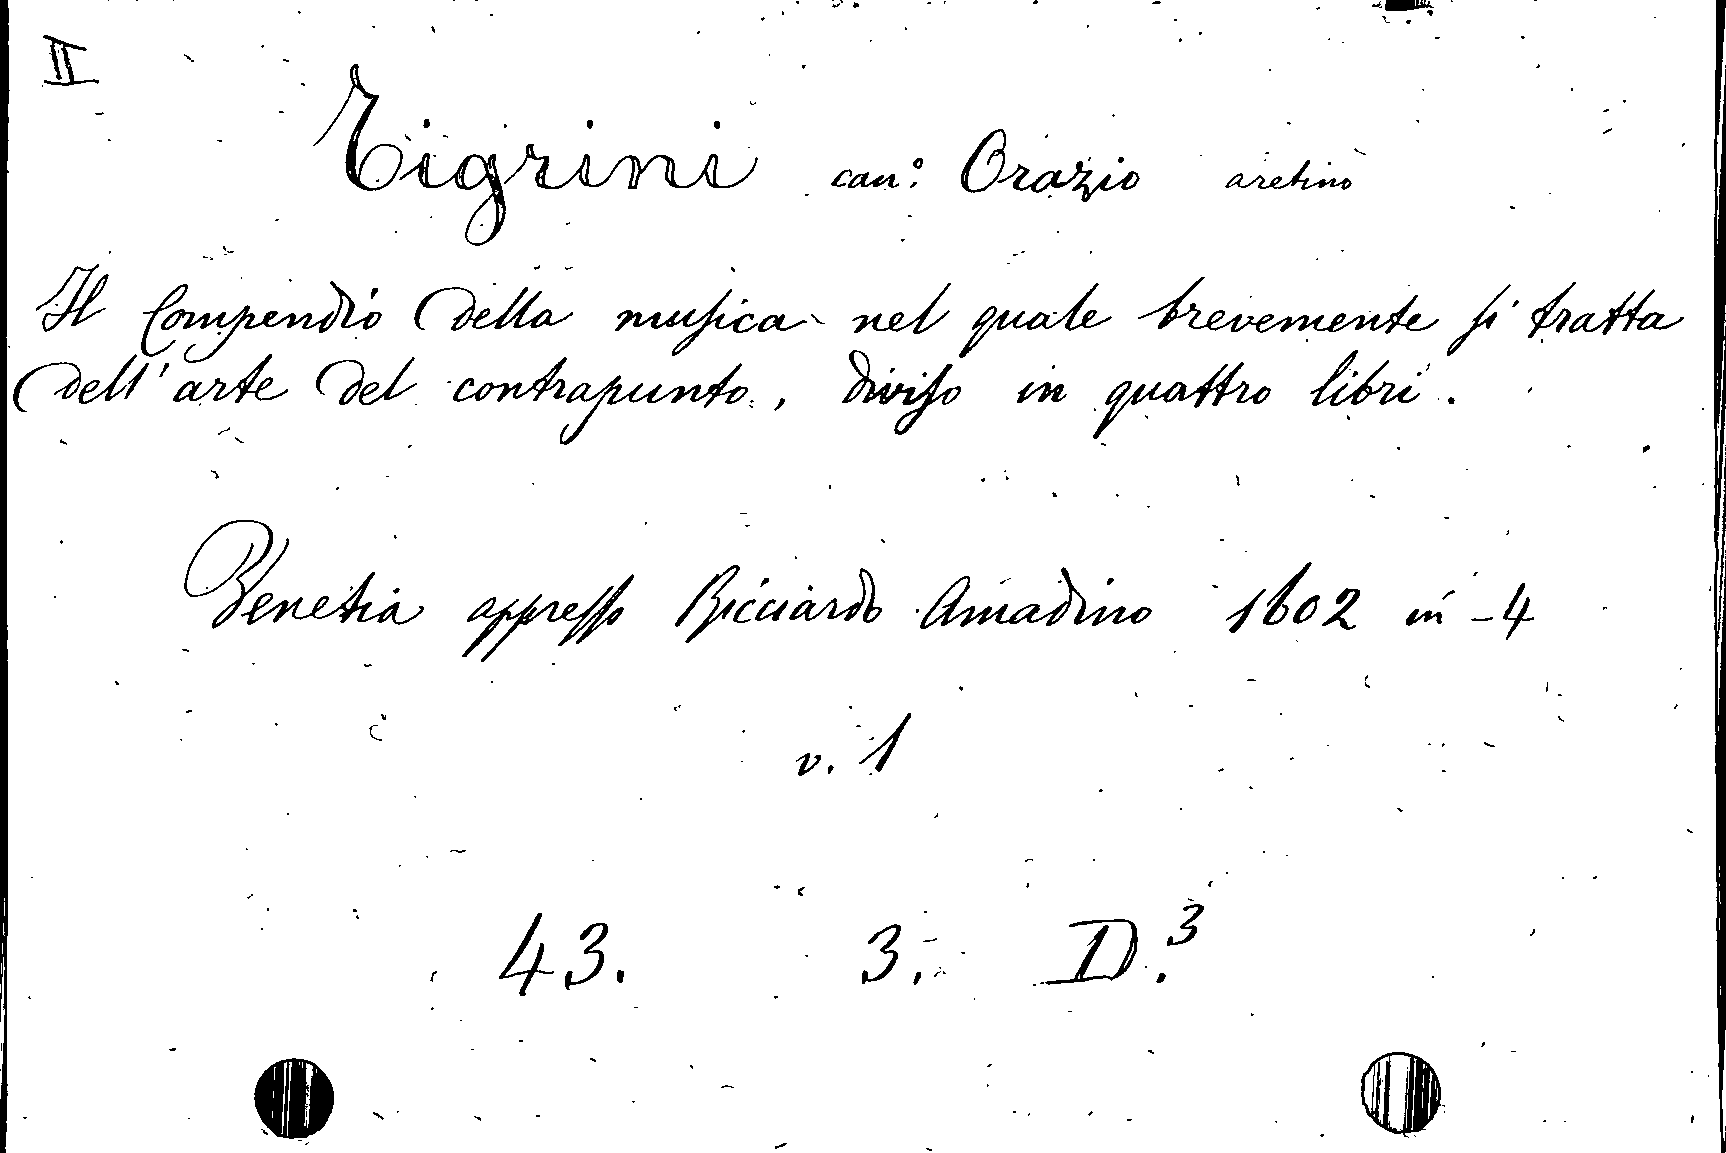 II
Tigrini can.º Orazio aretino
Il Compendio della musica nel quale brevemente si tratta
dell'arte del contrapunto, diviso in quattro libri.
Venetia appresso Ricciardo Amadino 1602 in-4
v. 1
43. 3. D.³